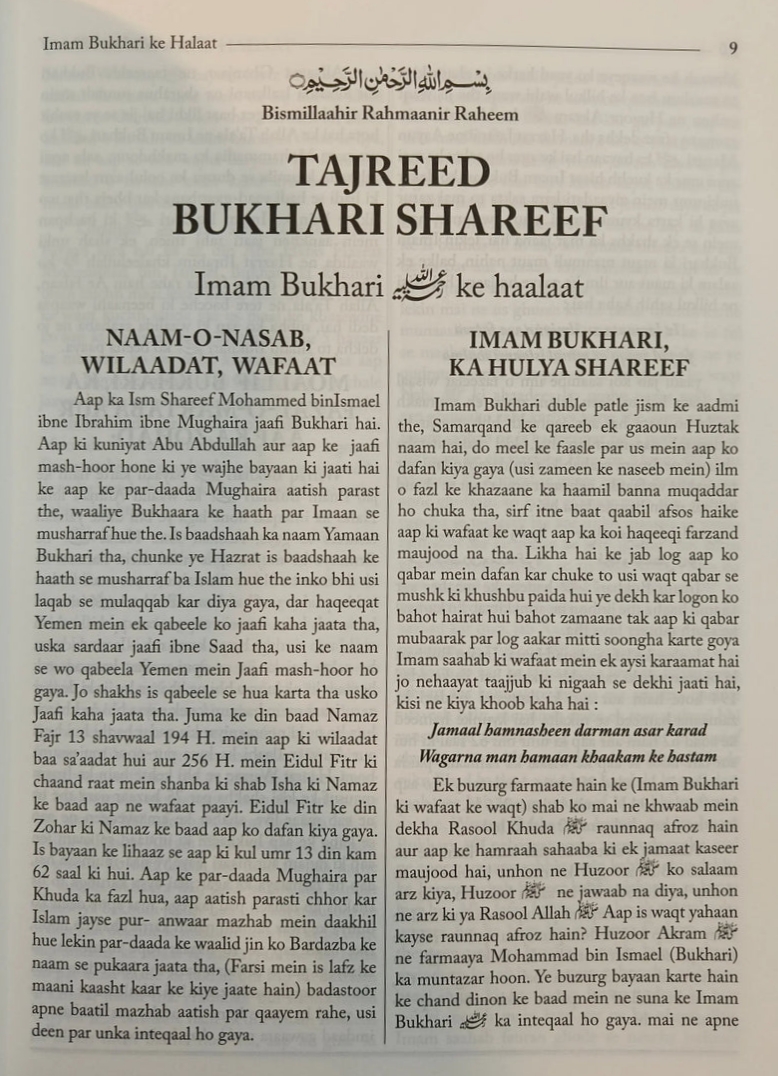 Imam Bukhari ke Halaat 9
بِسْمِ اللهِ الرَّحْمٰنِ الرَّحِيْمِ
Bismillaahir Rahmaanir Raheem
TAJREED
BUKHARI SHAREEF
Imam Bukhari رحمۃ اللہ علیہ ke haalaat
NAAM-O-NASAB,
WILAADAT, WAFAAT
Aap ka Ism Shareef Mohammed binIsmael
ibne Ibrahim ibne Mughaira jaafi Bukhari hai.
Aap ki kuniyat Abu Abdullah aur aap ke jaafi
mash-hoor hone ki ye wajhe bayaan ki jaati hai
ke aap ke par-daada Mughaira aatish parast
the, waaliye Bukhaara ke haath par Imaan se
musharraf hue the. Is baadshaah ka naam Yamaan
Bukhari tha, chunke ye Hazrat is baadshaah ke
haath se musharraf ba Islam hue the inko bhi usi
laqab se mulaqqab kar diya gaya, dar haqeeqat
Yemen mein ek qabeele ko jaafi kaha jaata tha,
uska sardaar jaafi ibne Saad tha, usi ke naam
se wo qabeela Yemen mein Jaafi mash-hoor ho
gaya. Jo shakhs is qabeele se hua karta tha usko
Jaafi kaha jaata tha. Juma ke din baad Namaz
Fajr 13 shavwaal 194 H. mein aap ki wilaadat
baa sa'aadat hui aur 256 H. mein Eidul Fitr ki
chaand raat mein shanba ki shab Isha ki Namaz
ke baad aap ne wafaat paayi. Eidul Fitr ke din
Zohar ki Namaz ke baad aap ko dafan kiya gaya.
Is bayaan ke lihaaz se aap ki kul umr 13 din kam
62 saal ki hui. Aap ke par-daada Mughaira par
Khuda ka fazl hua, aap aatish parasti chhor kar
Islam jayse pur- anwaar mazhab mein daakhil
hue lekin par-daada ke waalid jin ko Bardazba ke
naam se pukaara jaata tha, (Farsi mein is lafz ke
maani kaasht kaar ke kiye jaate hain) badastoor
apne baatil mazhab aatish par qaayem rahe, usi
deen par unka inteqaal ho gaya.
IMAM BUKHARI,
KA HULYA SHAREEF
Imam Bukhari duble patle jism ke aadmi
the, Samarqand ke qareeb ek gaaoun Huztak
naam hai, do meel ke faasle par us mein aap ko
dafan kiya gaya (usi zameen ke naseeb mein) ilm
o fazl ke khazaane ka haamil banna muqaddar
ho chuka tha, sirf itne baat qaabil afsos haike
aap ki wafaat ke waqt aap ka koi haqeeqi farzand
maujood na tha. Likha hai ke jab log aap ko
qabar mein dafan kar chuke to usi waqt qabar se
mushk ki khushbu paida hui ye dekh kar logon ko
bahot hairat hui bahot zamaane tak aap ki qabar
mubaarak par log aakar mitti soongha karte goya
Imam saahab ki wafaat mein ek aysi karaamat hai
jo nehaayat taajjub ki nigaah se dekhi jaati hai,
kisi ne kiya khoob kaha hai :
Jamaal hamnasheen darman asar karad
Wagarna man hamaan khaakam ke hastam
Ek buzurg farmaate hain ke (Imam Bukhari
ki wafaat ke waqt) shab ko mai ne khwaab mein
dekha Rasool Khuda ﷺ raunnaq afroz hain
aur aap ke hamraah sahaaba ki ek jamaat kaseer
maujood hai, unhon ne Huzoor ﷺ ko salaam
arz kiya, Huzoor ﷺ ne jawaab na diya, unhon
ne arz ki ya Rasool Allah ﷺ Aap is waqt yahaan
kayse raunnaq afroz hain? Huzoor Akram ﷺ
ne farmaaya Mohammad bin Ismael (Bukhari)
ka muntazar hoon. Ye buzurg bayaan karte hain
ke chand dinon ke baad mein ne suna ke Imam
Bukhari رحمۃ اللہ علیہ ka inteqaal ho gaya. mai ne apne